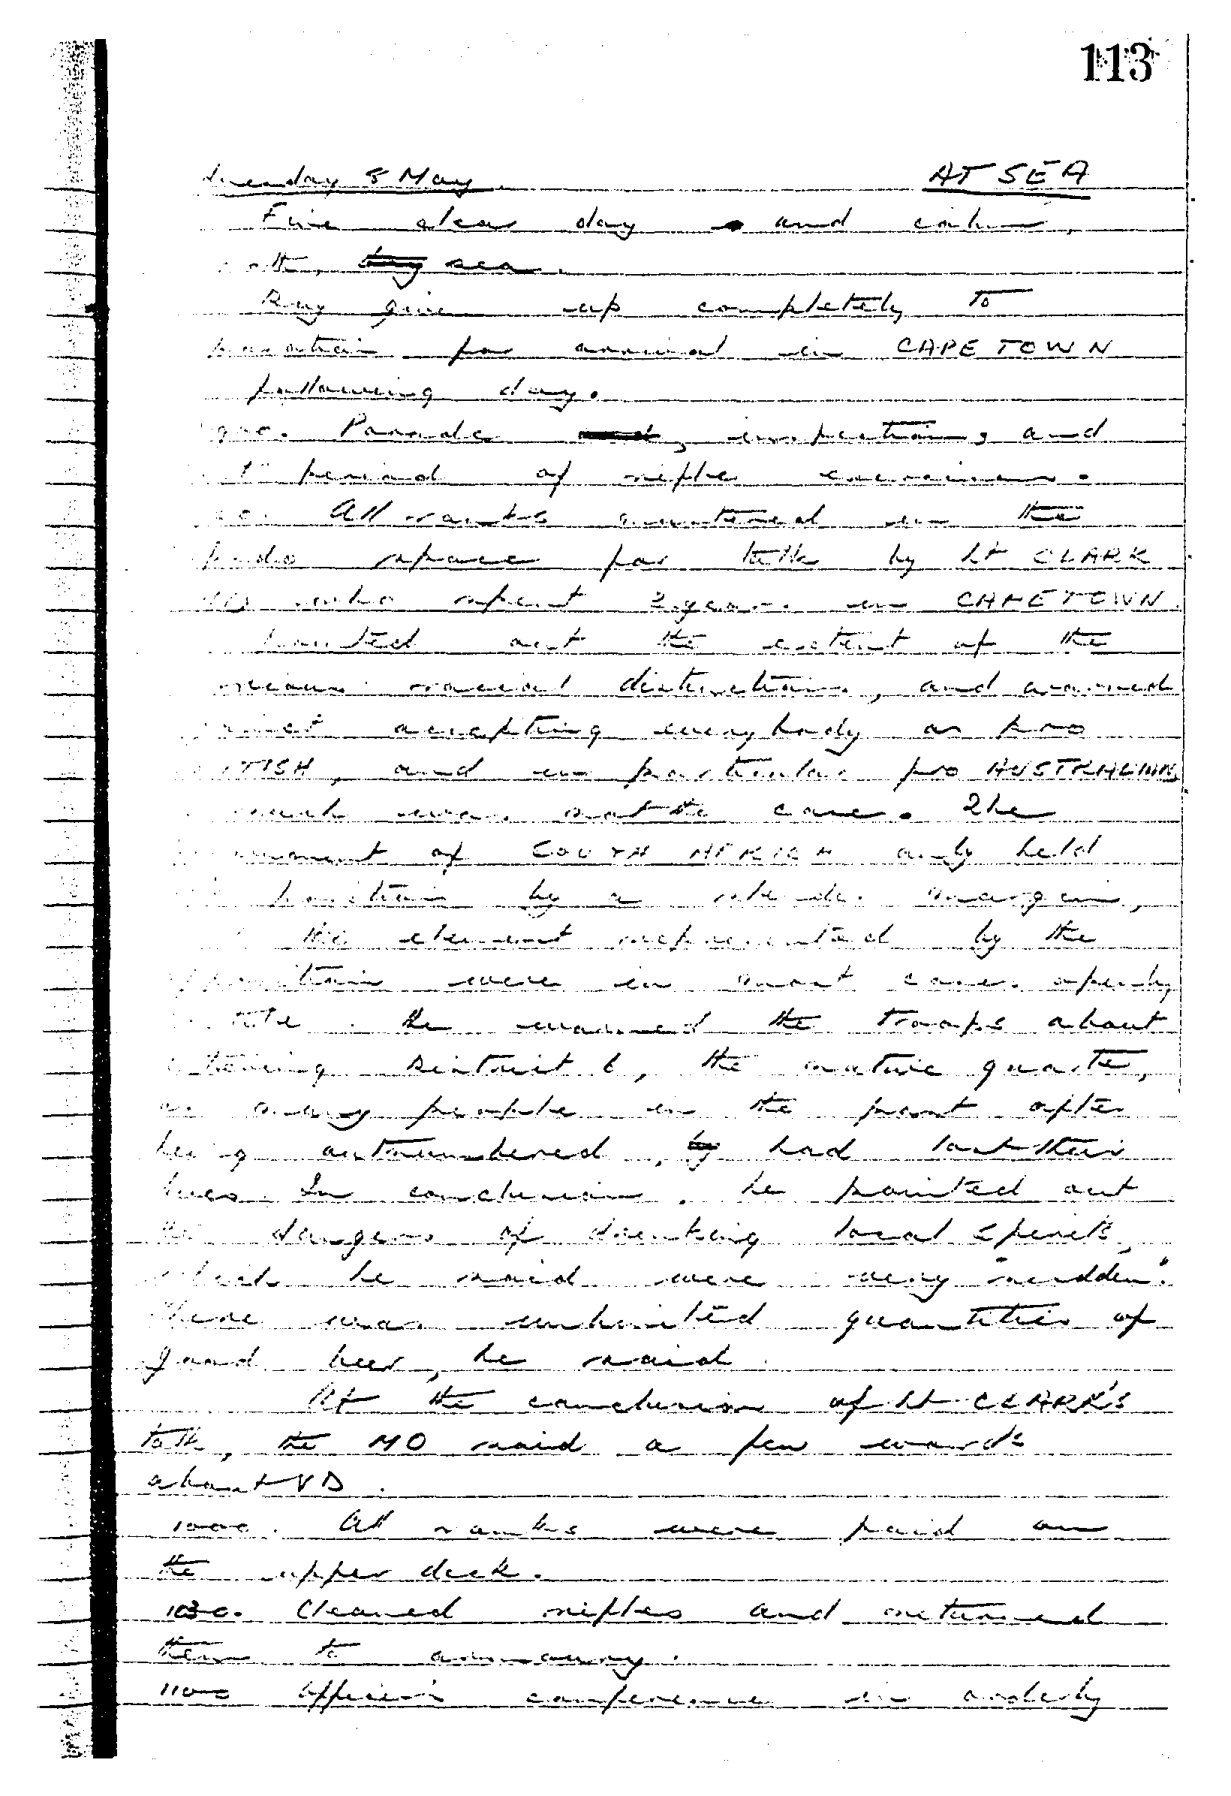 113
Tuesday 5 May AT SEA
Fine clear day and calm,
sea.
Day give up completely to
for arrival in CAPE TOWN
following day.
Parade, inspection, and
period of rifle exercises.
All ranks mustered in the
space for talk by Lt CLARK
who spent 2 years in CAPETOWN.
pointed out the extent of the
racial distinctions, and warned
accepting everybody as pro
, and in particular pro AUSTRALIAN,
such was not the case. The
of SOUTH AFRICA only held
position by a slender margin,
the element represented by the
were in most cases openly
He warned the troops about
District 6, the native quarter,
as many people in the past after
being outnumbered, had lost their
lives. In conclusion, he pointed out
the dangers of drinking local spirits,
which he said were very "sudden".
There was unlimited quantities of
good beer, he said.
At the conclusion of Lt CLARK'S
talk, the MO said a few words
about VD.
1000. All ranks were paid on
the upper deck.
1030. Cleaned rifles and returned
them to armoury.
1100 Officers conference in orderly